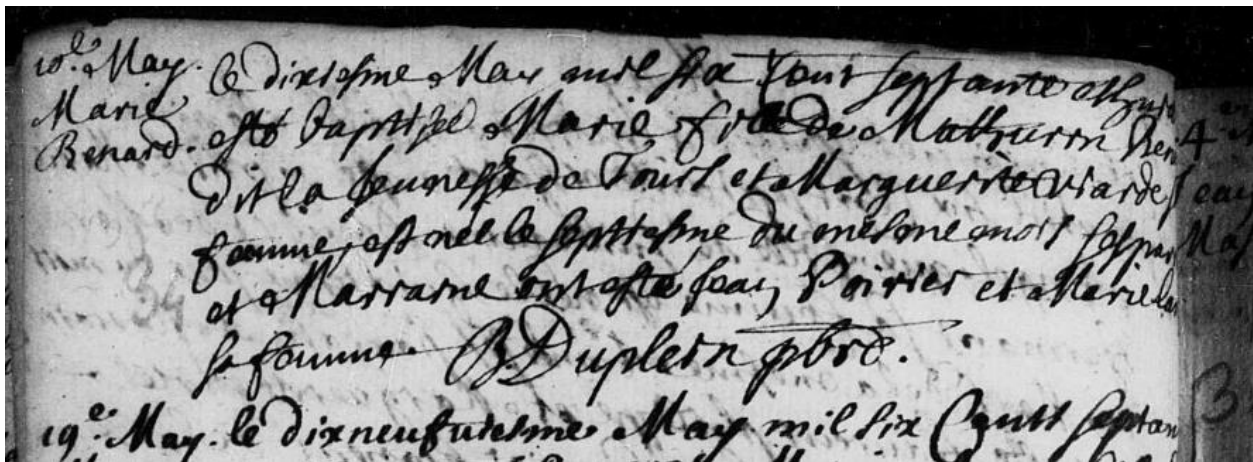 10.e May.
Marie
Renard.
le dixiesme May mil six Cent septante et huit
esté baptisée Marie fille de Mathurin Ren
Dit la Jeunesse de Tours et Marguerite viard
femme, est née le septiesme du mesme mois
et Marraine ont esté Jean Poirier et Marie la
sa femme. B. Duplein pbre.
19.e May. le dixneufuiesme May mil six Cents septan
4
3